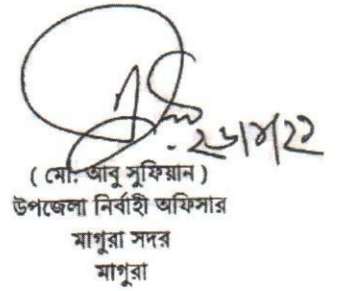 ২৬/৮/২২
( মো: আবু সুফিয়ান )
উপজেলা নির্বাহী অফিসার
মাগুরা সদর
মাগুরা